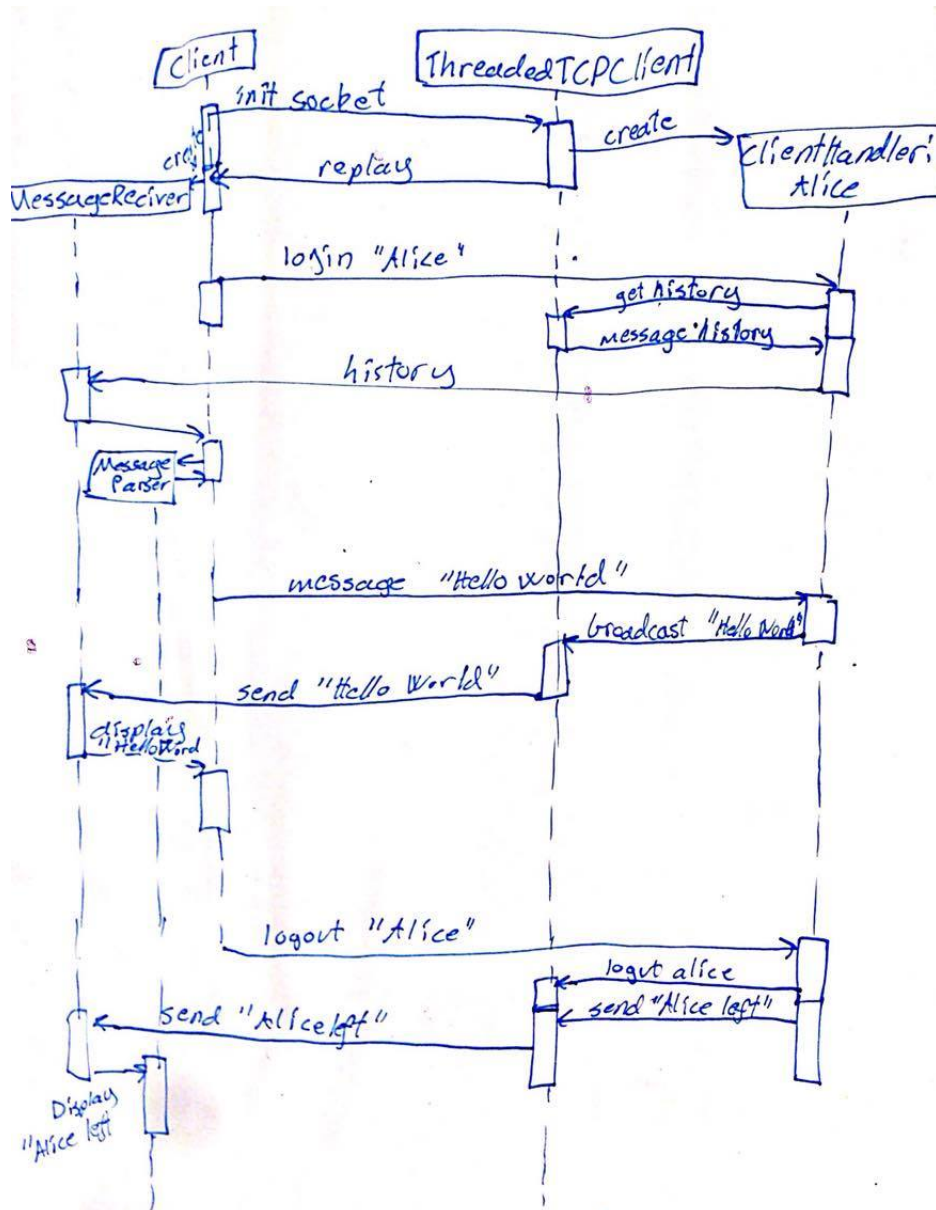 Client
ThreadedTCPClient
init socket
create
create
ClientHandler:
Alice
replay
MessageReciver
login "Alice"
get history
message history
history
Message
Parser
message "Hello world"
broadcast "Hello Word"
send "Hello World"
display
"HelloWord
logout "Alice"
logut alice
send "Alice left"
send "Alice left"
Display
"Alice left